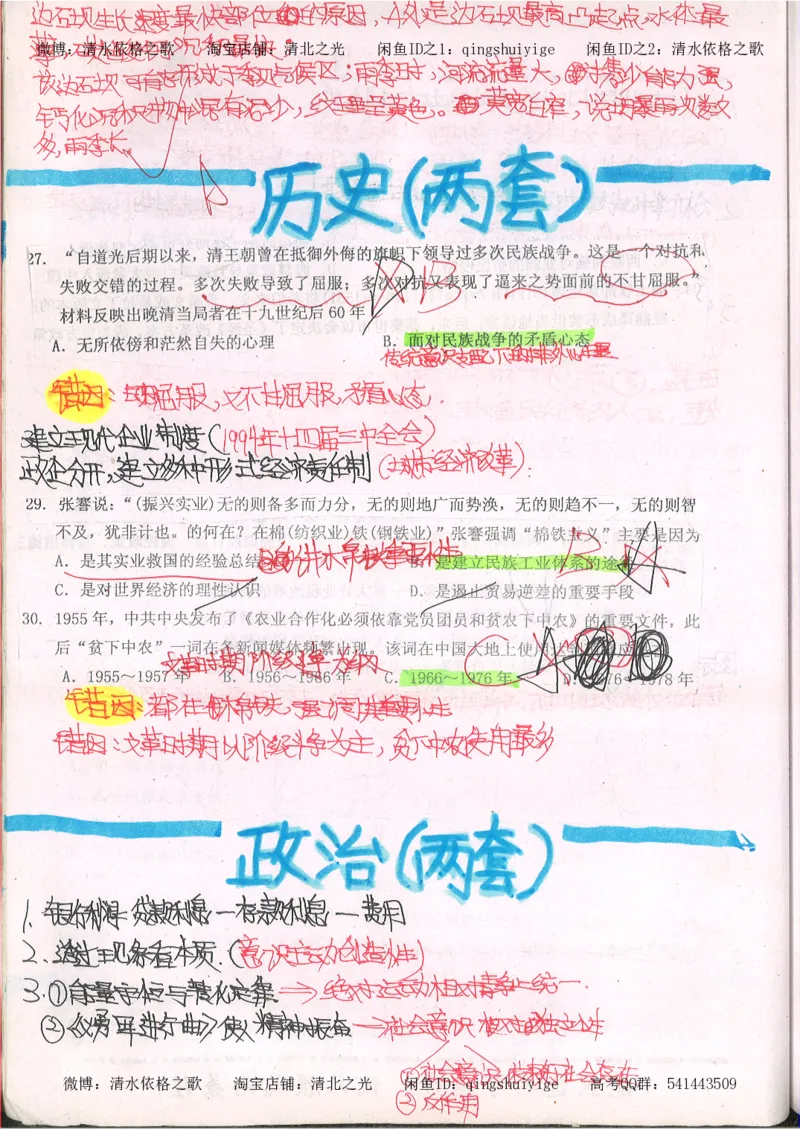 边石坝生长速度最快部位的原因，A处是边石坝最高凸起点，水体最
微博：清水依格之歌 淘宝店铺：清北之光 闲鱼ID之1：qingshuiyige 闲鱼ID之2：清水依格之歌
该边石坝可能形成于季风气候区；雨季时，河流流量大，对集沙能力强，
钙华沉积物中泥有沙，纹理呈黄色。黄宽白窄，说明暴雨次数
多，雨季长。
历史(两套)
27. “自道光后期以来，清王朝曾在抵御外侮的旗帜下领导过多次民族战争。这是一个对抗和
失败交错的过程。多次失败导致了屈服；多次对抗又表现了逼来之势面前的不甘屈服。”
材料反映出晚清当局者在十九世纪后60年 B
A. 无所依傍和茫然自失的心理 B. 面对民族战争的矛盾心态
传统意识支配下的排外心理
错因：既屈服，又不甘屈服，矛盾心态.
建立现代企业制度(1994年十四届三中全会)
政企分开，建立多种形式经济责任制(城市经济改革)
29. 张謇说：“(振兴实业)无的则备多而力分，无的则地广而势涣，无的则趋不一，无的则智
不及，犹非计也。的何在？在棉(纺织业)铁(钢铁业)”张謇强调“棉铁主义”主要是因为
A. 是其实业救国的经验总结 B. 是建立民族工业体系的途
C. 是对世界经济的理性认识 D. 是遏止贸易逆差的重要手段
30. 1955年，中共中央发布了《农业合作化必须依靠党员团员和贫农下中农》的重要文件，此
后“贫下中农”一词在各新闻媒体频繁出现。该词在中国大地上使用
文革时期阶级斗争为纲
A. 1955～1957年 B. 1956～1966年 C. 1966～1976年 D. 1976～1978年
错因：
错因：文革时期以阶级斗争为主，贫下中农使用最多
政治(两套)
1. 银行利润=贷款利息－存款利息－费用
2. 透过现象看本质.(意识主动创造性)
3. ①能量守恒与转化定律→绝对运动相对静止统一.
②《义勇军进行曲》使人精神振奋→社会意识相对独立性
①社会意识 社会存在
微博：清水依格之歌 淘宝店铺：清北之光 闲鱼ID：qingshuiyige 高考QQ群：541443509
②反作用